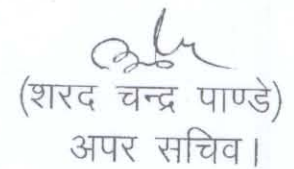 (शरद चन्द्र पाण्डे)
अपर सचिव।